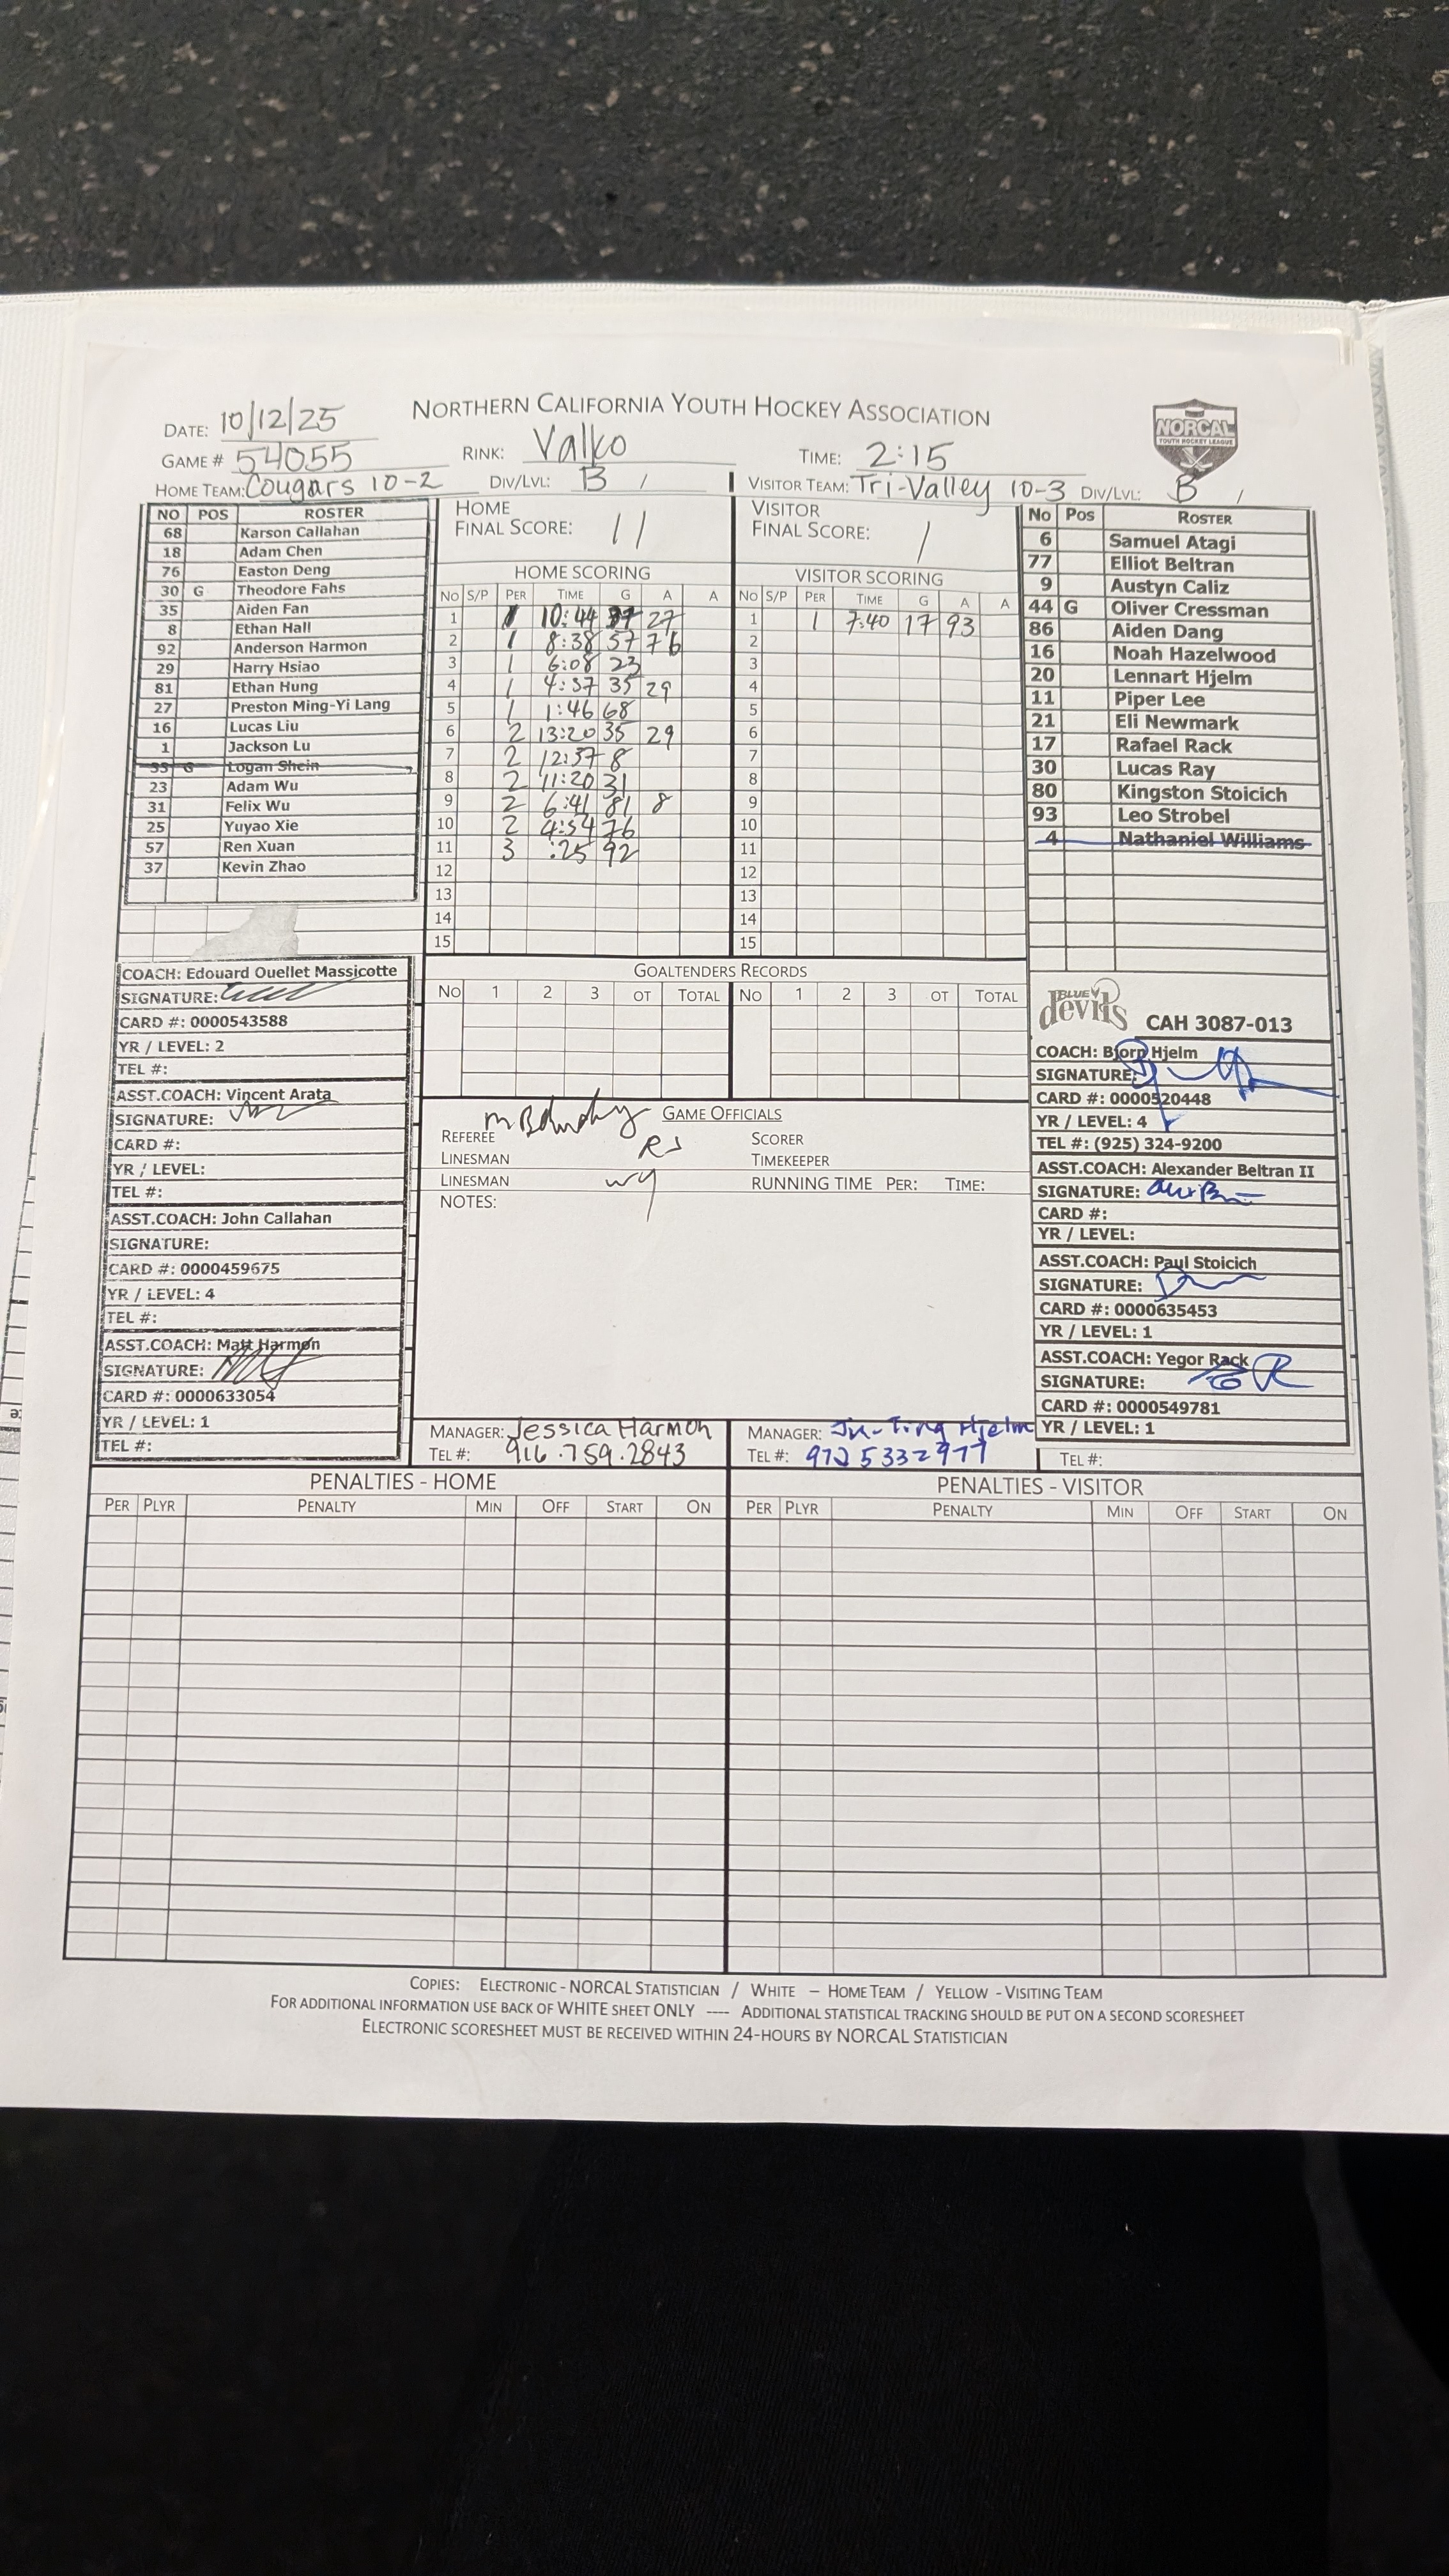 NORTHERN CALIFORNIA YOUTH HOCKEY ASSOCIATION
NORCAL
YOUTH HOCKEY LEAGUE
DATE: 10/12/25
GAME # 54055
RINK: Valko
TIME: 2:15
HOME TEAM: Cougars 10-2 DIV/LVL: B /
VISITOR TEAM: Tri-Valley 10-3 DIV/LVL: B /
NO POS ROSTER
68 Karson Callahan
18 Adam Chen
76 Easton Deng
30 G Theodore Fahs
35 Aiden Fan
8 Ethan Hall
92 Anderson Harmon
29 Harry Hsiao
81 Ethan Hung
27 Preston Ming-Yi Lang
16 Lucas Liu
1 Jackson Lu
33 G Logan Shein
23 Adam Wu
31 Felix Wu
25 Yuyao Xie
57 Ren Xuan
37 Kevin Zhao
HOME
FINAL SCORE: 11
HOME SCORING
NO S/P PER TIME G A A
1 1 10:44 37 27
2 1 8:38 57 76
3 1 6:08 23
4 1 4:37 35 29
5 1 1:46 68
6 2 13:20 35 29
7 2 12:37 8
8 2 11:20 31
9 2 6:41 81 8
10 2 4:54 76
11 3 :25 92
12
13
14
15
VISITOR
FINAL SCORE: 1
VISITOR SCORING
NO S/P PER TIME G A A
1 1 7:40 17 93
2
3
4
5
6
7
8
9
10
11
12
13
14
15
No Pos ROSTER
6 Samuel Atagi
77 Elliot Beltran
9 Austyn Caliz
44 G Oliver Cressman
86 Aiden Dang
16 Noah Hazelwood
20 Lennart Hjelm
11 Piper Lee
21 Eli Newmark
17 Rafael Rack
30 Lucas Ray
80 Kingston Stoicich
93 Leo Strobel
4 Nathaniel Williams
COACH: Edouard Ouellet Massicotte
SIGNATURE:
CARD #: 0000543588
YR / LEVEL: 2
TEL #:
ASST.COACH: Vincent Arata
SIGNATURE:
CARD #:
YR / LEVEL:
TEL #:
ASST.COACH: John Callahan
SIGNATURE:
CARD #: 0000459675
YR / LEVEL: 4
TEL #:
ASST.COACH: Matt Harmon
SIGNATURE:
CARD #: 0000633054
YR / LEVEL: 1
TEL #:
GOALTENDERS RECORDS
NO 1 2 3 OT TOTAL NO 1 2 3 OT TOTAL
GAME OFFICIALS
REFEREE SCORER
LINESMAN RS TIMEKEEPER
LINESMAN RUNNING TIME PER: TIME:
NOTES:
BLUE devils CAH 3087-013
COACH: Bjorn Hjelm
SIGNATURE:
CARD #: 0000520448
YR / LEVEL: 4
TEL #: (925) 324-9200
ASST.COACH: Alexander Beltran II
SIGNATURE:
CARD #:
YR / LEVEL:
ASST.COACH: Paul Stoicich
SIGNATURE:
CARD #: 0000635453
YR / LEVEL: 1
ASST.COACH: Yegor Rack
SIGNATURE:
CARD #: 0000549781
YR / LEVEL: 1
TEL #:
MANAGER: Jessica Harmon
TEL #: 916.759.2843
MANAGER: Hjelm
TEL #: 972 5332977
PENALTIES - HOME
PER PLYR PENALTY MIN OFF START ON
PENALTIES - VISITOR
PER PLYR PENALTY MIN OFF START ON
COPIES: ELECTRONIC - NORCAL STATISTICIAN / WHITE – HOME TEAM / YELLOW - VISITING TEAM
FOR ADDITIONAL INFORMATION USE BACK OF WHITE SHEET ONLY ---- ADDITIONAL STATISTICAL TRACKING SHOULD BE PUT ON A SECOND SCORESHEET
ELECTRONIC SCORESHEET MUST BE RECEIVED WITHIN 24-HOURS BY NORCAL STATISTICIAN